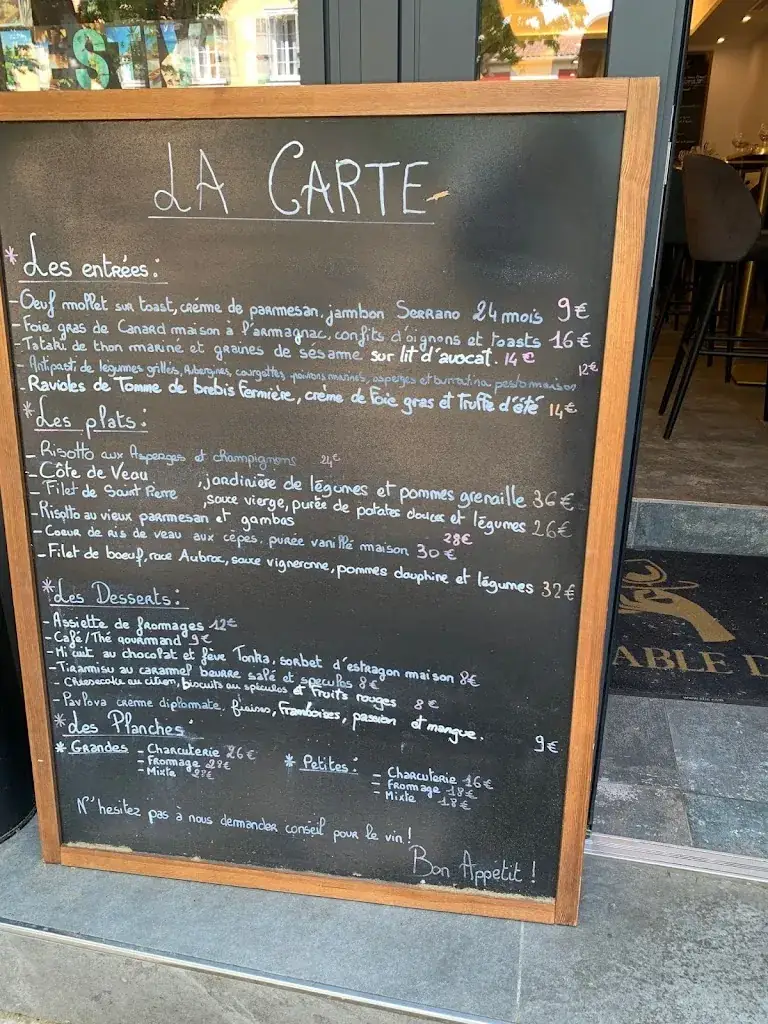 LA CARTE
* Les entrées:
- Oeuf mollet sur toast, crème de parmesan, jambon Serrano 24 mois 9€
- Foie gras de Canard maison à l'armagnac, confits d'oignons et toasts 16€
- Tataki de thon mariné et graines de sésame sur lit d'avocat. 14€
- Antipasti de légumes grillés, Aubergines, courgettes, poivrons marinés, asperges et burratina pesto maison 12€
- Ravioles de Tomme de brebis Fermière, crème de Foie gras et Truffe d'été 14€
* Les plats:
- Risotto aux Asperges et champignons 24€
- Côte de Veau, jardinière de légumes et pommes grenaille 36€
- Filet de Saint Pierre, sauce vierge, purée de patates douces et légumes 26€
- Risotto au vieux parmesan et gambas 28€
- Coeur de Ris de veau aux cèpes, purée vanillé maison 30€
- Filet de boeuf, race Aubrac, sauce vigneronne, pommes dauphine et légumes 32€
* Les Desserts:
- Assiette de fromages 12€
- Café/Thé gourmand 9€
- Mi cuit au chocolat et fève Tonka, sorbet d'estragon maison 8€
- Tiramisu au caramel beurre salé et speculos 8€
- Cheesecake au citron, biscuits au spéculos et fruits rouges 8€
- Pavlova crème diplomate, fraises, Framboises, passion et mangue. 9€
* Les Planches:
* Grandes - Charcuterie 26€
- Fromage 28€
- Mixte 28€
* Petites:
- Charcuterie 16€
- Fromage 18€
- Mixte 18€
N'hesitez pas à nous demander conseil pour le vin!
Bon Appétit!
ABLE D